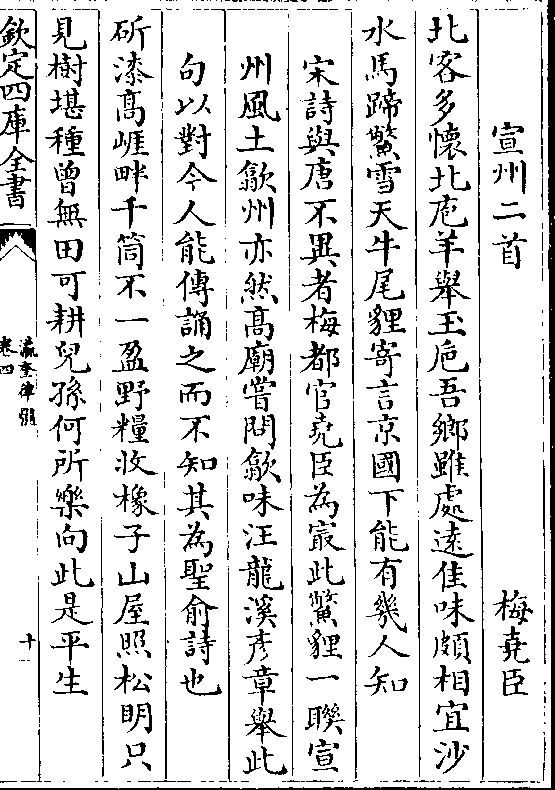 宣州二首　梅堯臣
北客多懷北庖羊舉玉巵吾鄉雖處遠佳味頗相宜沙
水馬蹄鱉雪天牛尾貍寄言京國下能有幾人知
宋詩與唐不異者梅都官堯臣為㝡此鱉貍一聨宣
州風土歙州亦然髙廟嘗問歙味汪龍溪彦章舉此
句以對今人能傳誦之而不知其為聖俞詩也
斫漆髙崖畔千筒不一盈野糧收橡子山屋照松明只
見樹堪種曾無田可耕兒孫何所樂向此是平生
欽定四庫全書
瀛奎律髓
卷四
十